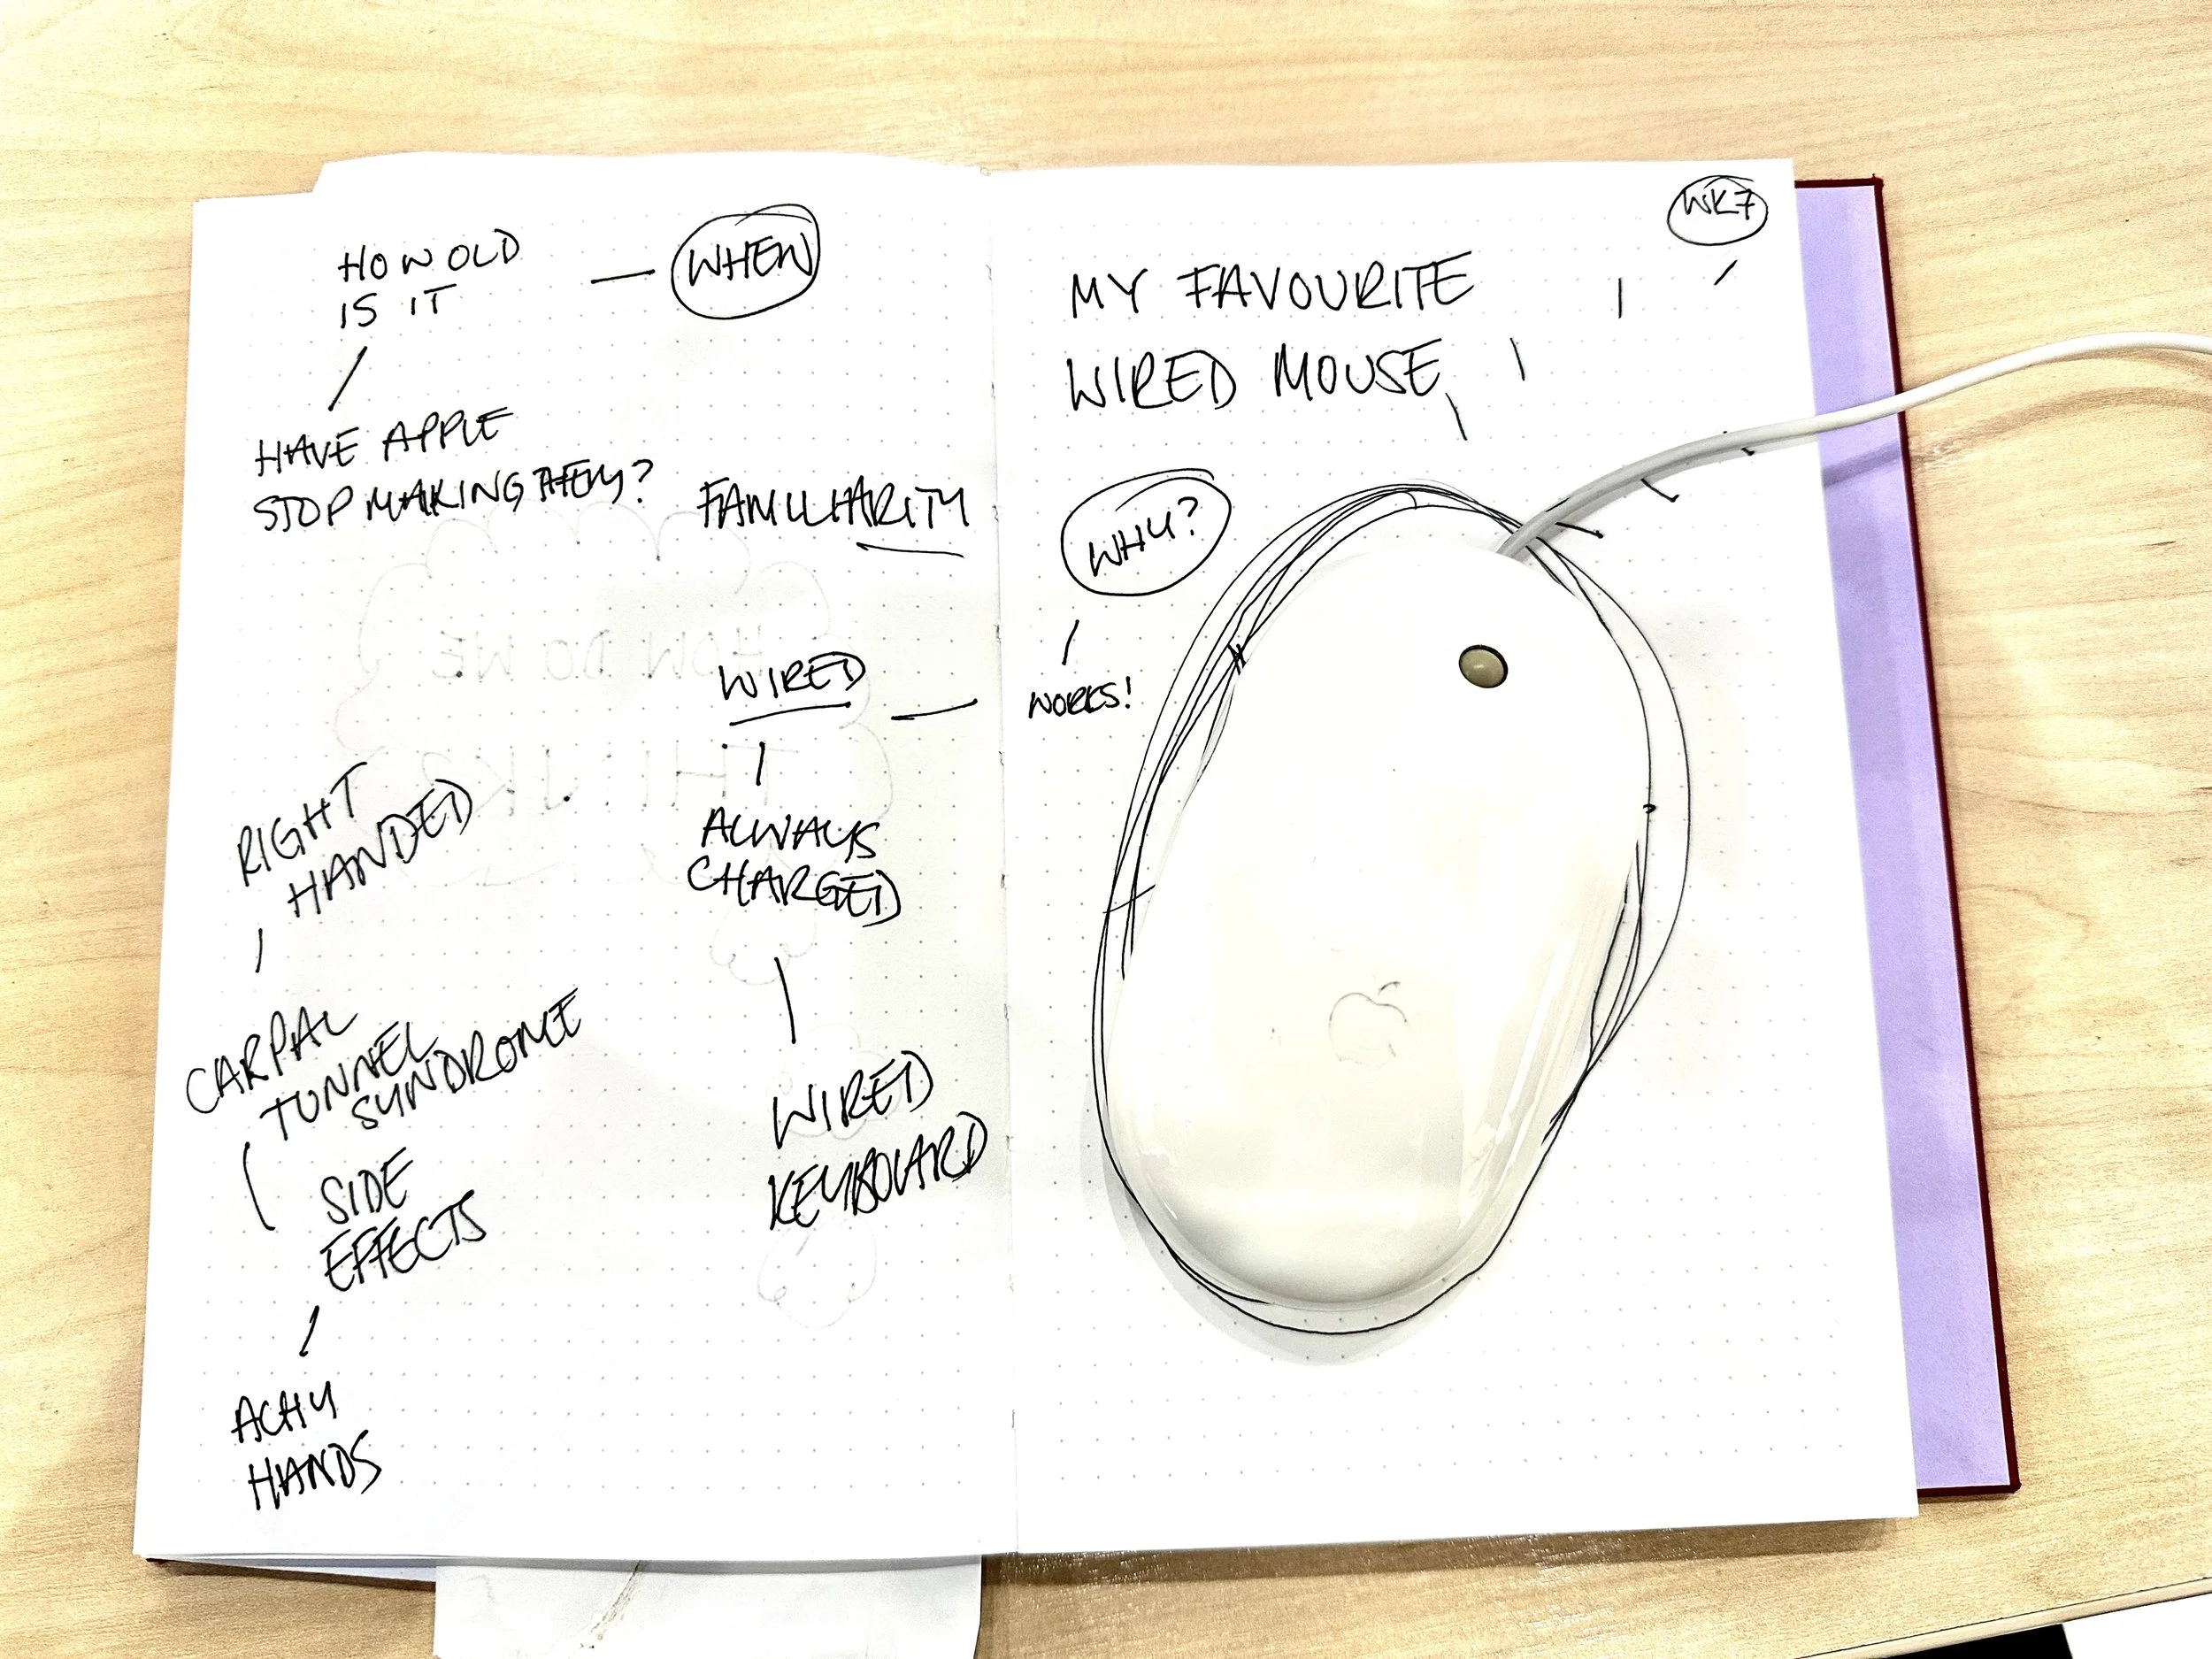 HOW OLD
IS IT
WHEN
HAVE APPLE
STOP MAKING THEM?
FAMILIARITY
WIRED
ALWAYS
CHARGED
WIRED
KEYBOARD
RIGHT
HANDED
CARPAL
TUNNEL
SYNDROME
SIDE
EFFECTS
ACHY
HANDS
WK7
MY FAVOURITE
WIRED MOUSE
WHY?
WORKS!
HOW DO WE
THINK?